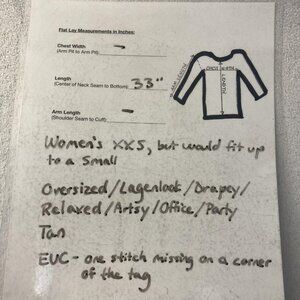 Flat Lay Measurements in Inches:
Chest Width -
(Arm Pit to Arm Pit)
Length 33"
(Center of Neck Seam to Bottom)
Arm Length -
(Shoulder Seam to Cuff)
CHEST WIDTH
LENGTH
ARM LENGTH
Women's XXS, but would fit up
to a Small
Oversized/Lagenlook/Drapey/
Relaxed/Artsy/Office/Party
Tan
EUC - one stitch missing on a corner
of the tag